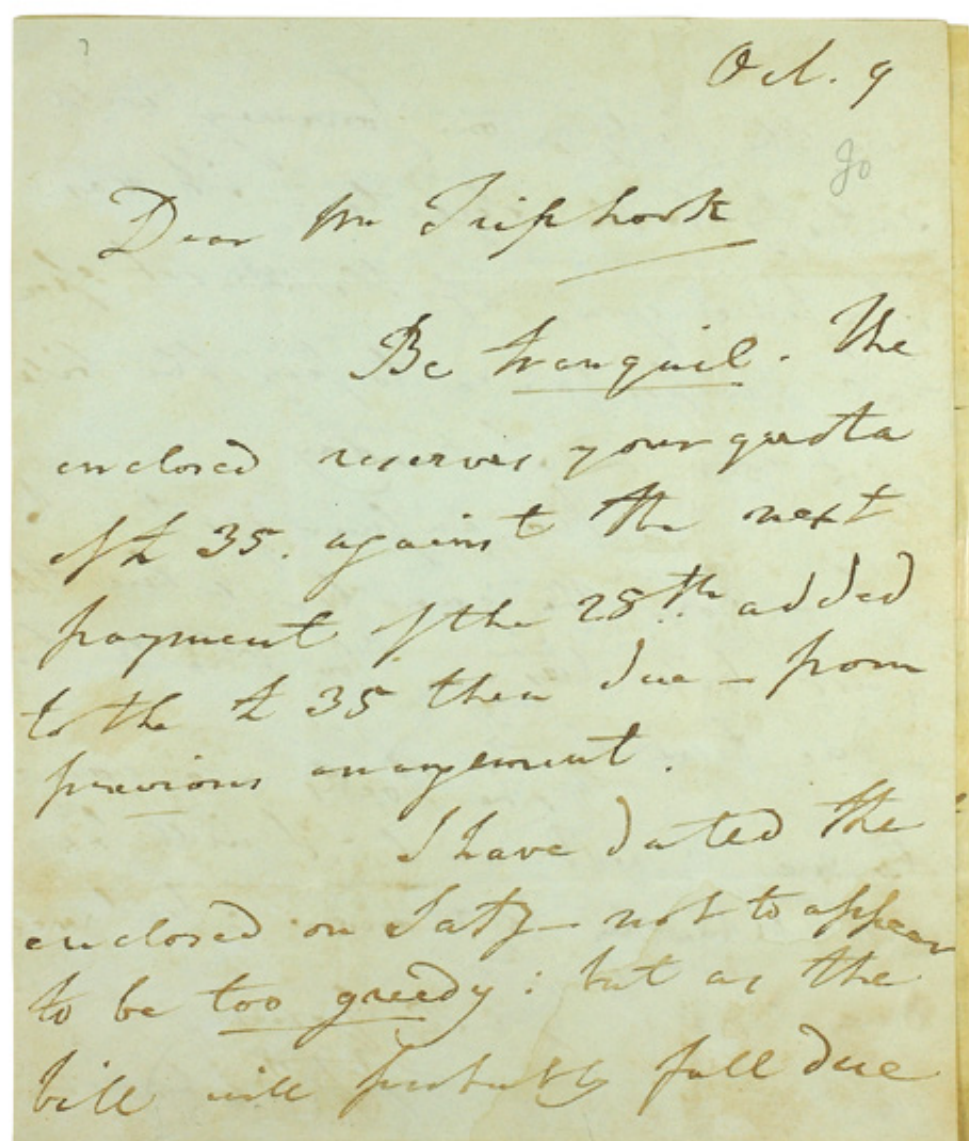 Oct. 9
30
Dear Mr Triphook
Be tranquil. The
enclosed reserves your quota
of £ 35. against the next
payment of the 28th. added
to the £ 35 then due – from
previous arrangement.
I have dated the
enclosed on Saty – not to appear
to be too greedy : but as the
bill will probably fall due